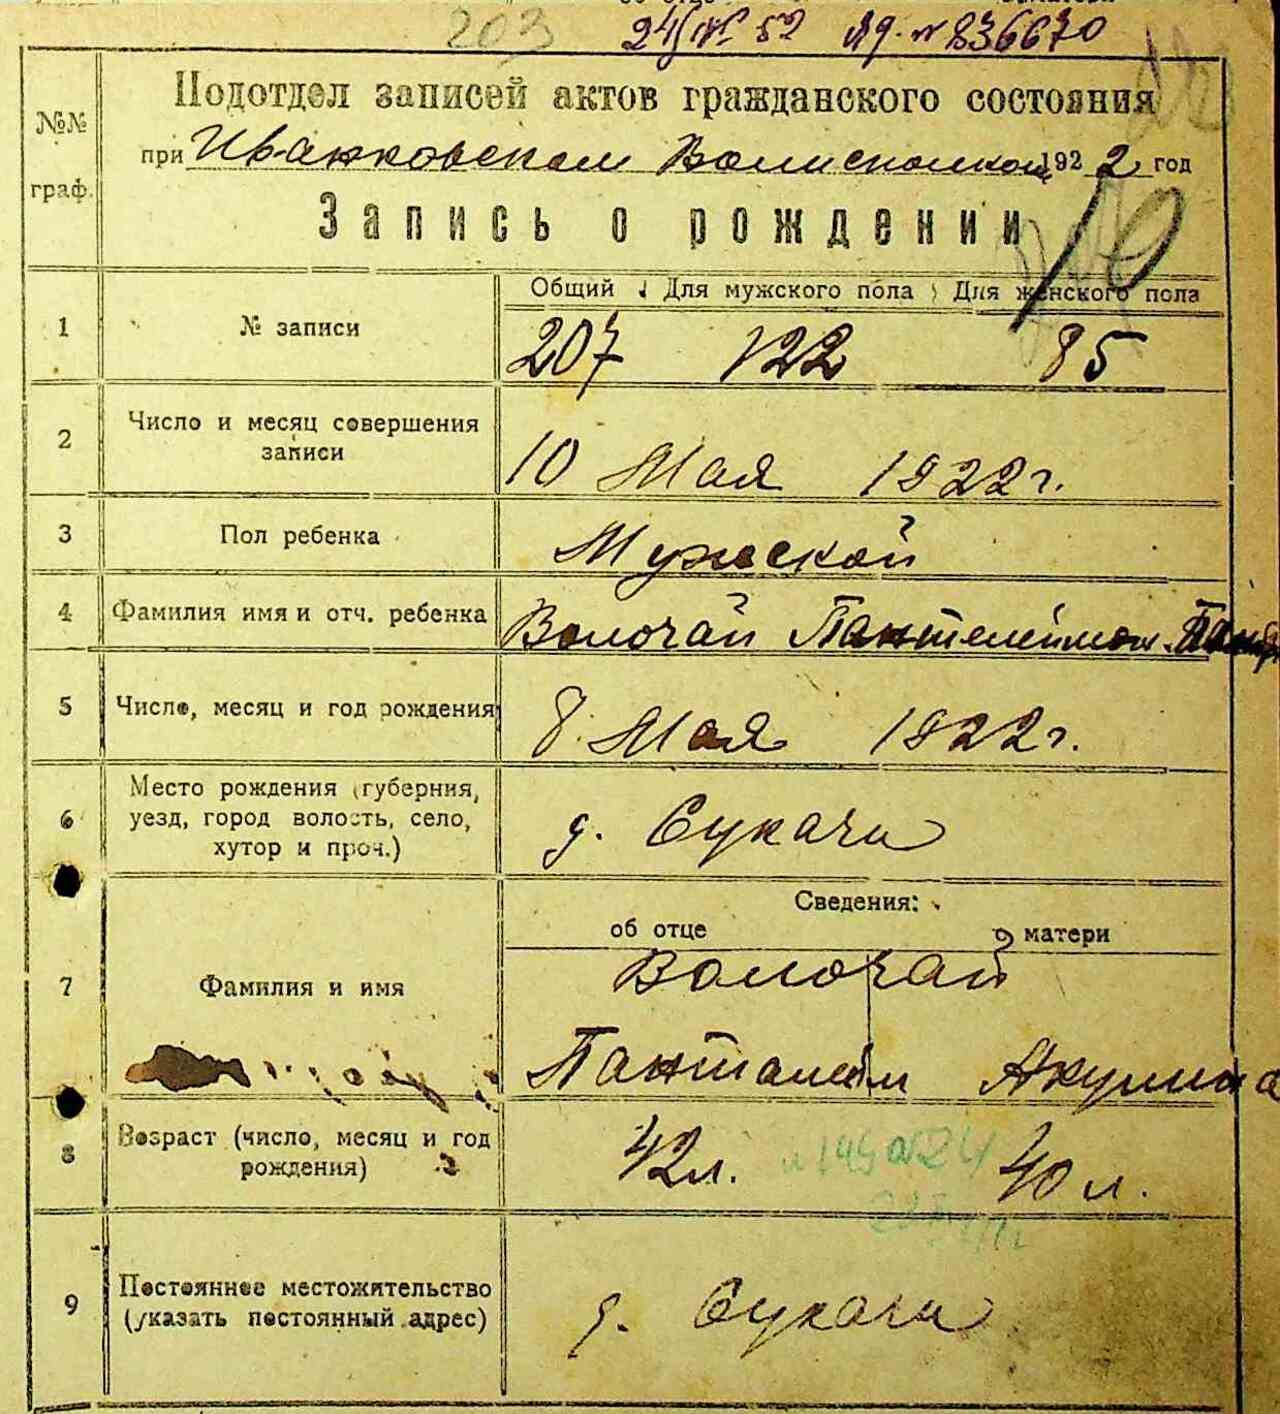 203
24/IV 52 Яд. № 836670
Подотдел записей актов гражданского состояния
№№ граф.
при Иванковском Волисполкоме 1922 год
Запись о рождении
Общий Для мужского пола Для женского пола
1 № записи 207 122 85
2 Число и месяц совершения записи 10 Мая 1922 г.
3 Пол ребенка Мужской
4 Фамилия имя и отч. ребенка Волочай Пантелеймон
5 Число, месяц и год рождения 8 Мая 1922 г.
6 Место рождения (губерния, уезд, город волость, село, хутор и проч.) д. Сукачи
Сведения:
об отце о матери
7 Фамилия и имя Волочай
Панталейм Акулина
8 Возраст (число, месяц и год рождения) 42 л. 40 л.
9 Постоянное местожительство (указать постоянный адрес) д. Сукачи